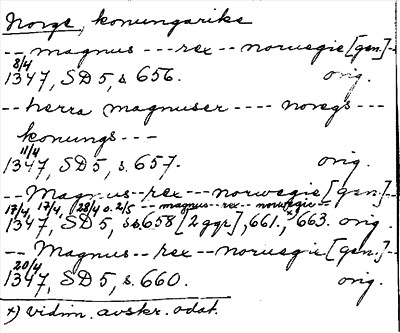 Norge, konungarike
-- magnus --- rex -- noruegie [gen.] --
8/4
1347, SD 5, s. 656. orig.
-- herra magnuser ---- noregs ---
konungs ---
11/4
1347, SD 5, s. 657. orig.
-- Magnus -- rex --- norwegie [gen.] --
17/4, 17/4, 28/4 o. 2/5 -- magnus -- rex -- noruegie --
1347, SD 5, ss 658 [2 ggr], 661, x) 663. orig.
-- Magnus -- rex -- noruegie [gen.] --
20/4
1347, SD 5, s. 660. orig.
x) vidim. avskr. odat.